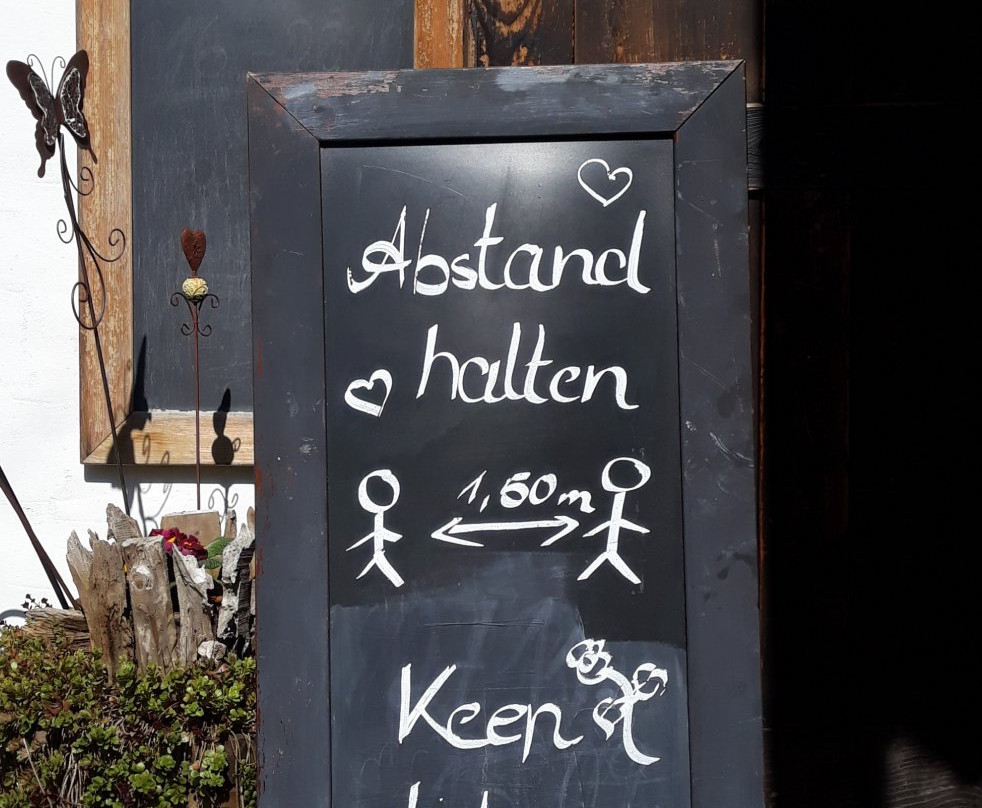 Abstand
halten
1,50m
Keep